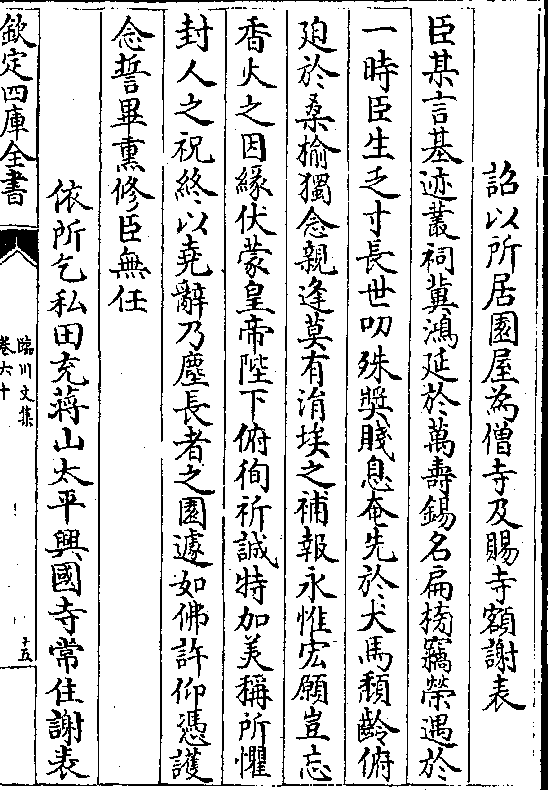 詔以所居園屋為僧寺及賜寺額謝表
臣某言基迹叢祠冀鴻延於萬壽錫名扁牓竊榮遇於
一時臣生乏寸長世叨殊奬賤息奄先於犬馬頽齡俯
廹於桑榆獨念親逢莫有涓埃之補報永惟宏願豈忘
香火之因緣伏蒙皇帝陛下俯徇祈誠特加美稱所懼
封人之祝終以堯辭乃塵長者之園遽如佛許仰憑護
念誓畢熏修臣無任
依所乞私田充蔣山太平興國寺常住謝表
欽定四庫全書
臨川文集
卷六十
十五